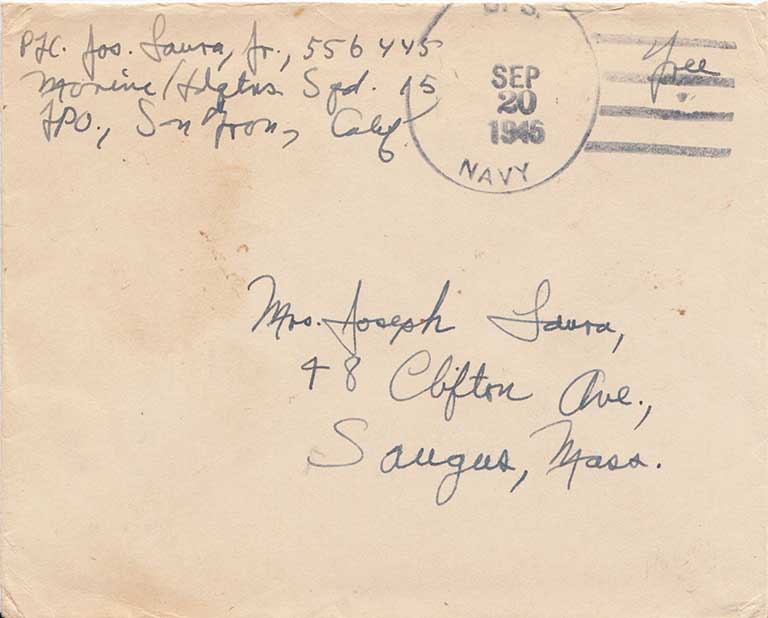 Pfc. Jos. Laura, Jr., 556445
Marine/Hdqtrs Sqd. 15
FPO., Sn Fran, Calif.
U.S.
SEP
20
1945
NAVY
Free
Mrs. Joseph Laura,
48 Clifton Ave.,
Saugus, Mass.